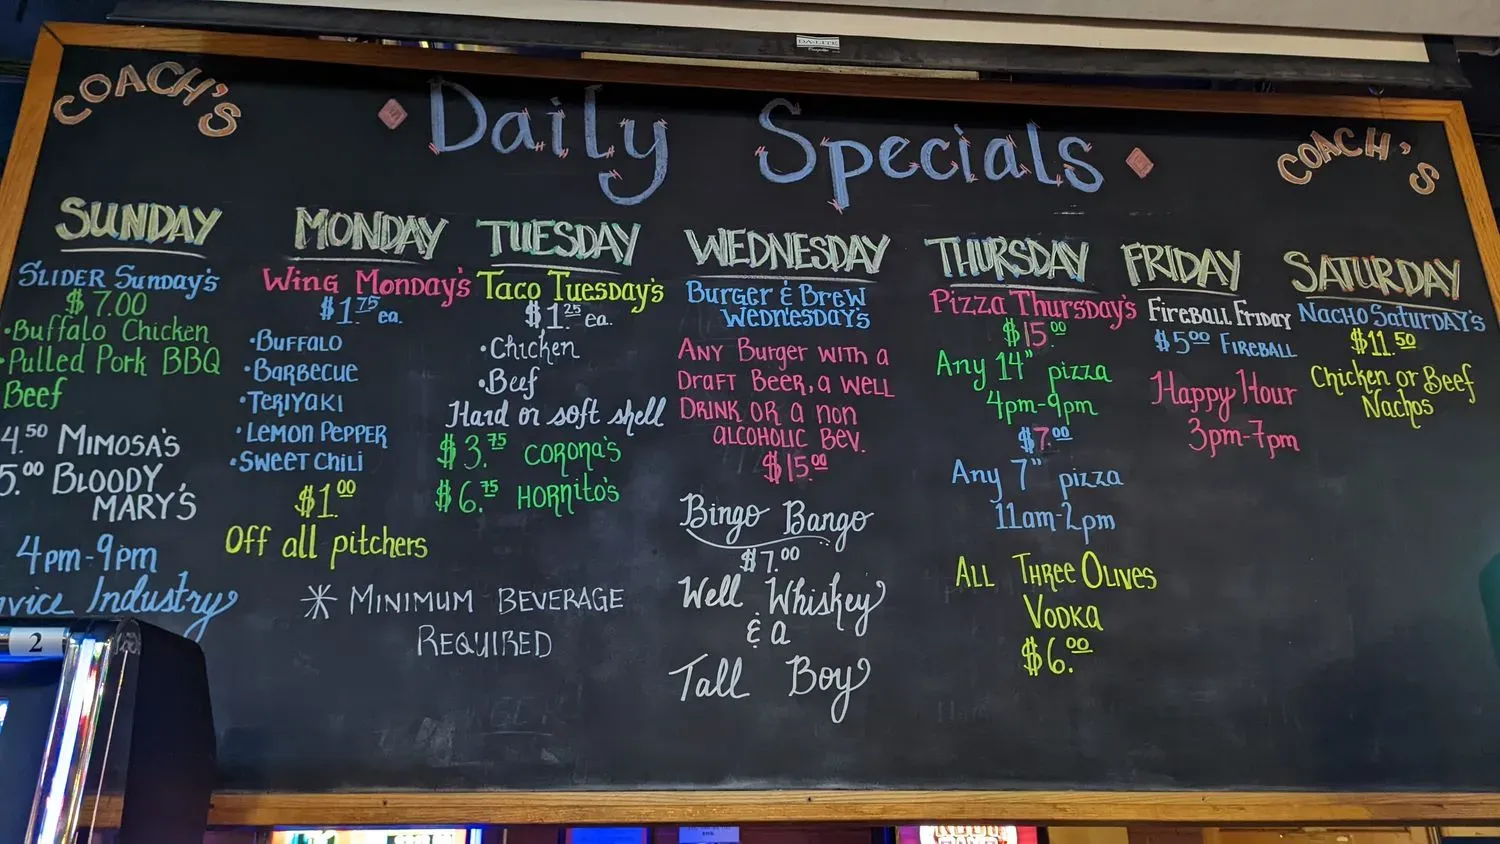 DA-LITE
COACH'S
Daily Specials
COACH'S
SUNDAY
SLIDER Sunday's
$7.00
•Buffalo Chicken
•Pulled Pork BBQ
Beef
4.50 MIMOSA'S
5.00 BLOODY
MARY'S
4pm-9pm
Industry
2
MONDAY
Wing Monday's
$1.75 ea.
•BUFFALO
•BARBECUE
•TERIYAKI
•LEMON PEPPER
•SWEET CHILI
$1.00
Off all pitchers
TUESDAY
Taco Tuesday's
$1.25 ea.
•Chicken
•Beef
Hard or soft shell
$3.75 CORONA'S
$6.75 HORNITO'S
* MINIMUM BEVERAGE
REQUIRED
WEDNESDAY
BURGER & BREW
WEDNESDAY'S
ANY Burger WITH a
DRAFT BEER, a WELL
DRINK OR a non
aLCOHOLIC BEV.
$15.00
Bingo Bango
$7.00
Well Whiskey
& a
Tall Boy
THURSDAY
Pizza Thursday's
$15.00
Any 14" pizza
4pm-9pm
$7.00
Any 7" pizza
11am-2pm
ALL THREE OLIVES
VODKA
$6.00
FRIDAY
FIREBALL FRIDAY
$5.00 FIREBALL
Happy Hour
3pm-7pm
SATURDAY
NACHO SATURDAY'S
$11.50
Chicken or Beef
Nachos